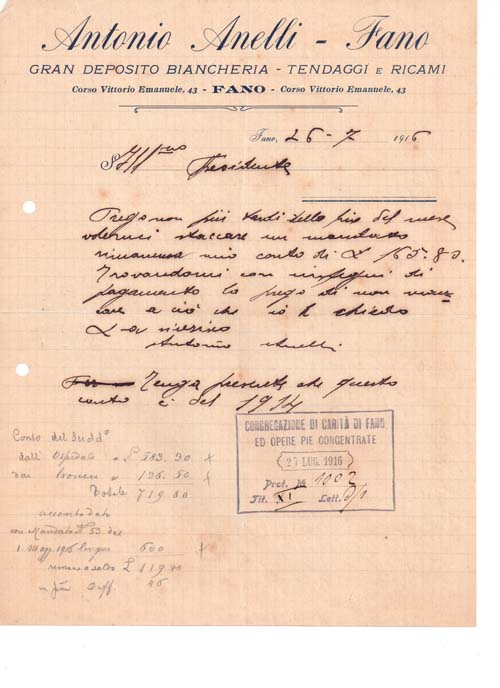 Antonio Anelli - Fano
GRAN DEPOSITO BIANCHERIA - TENDAGGI E RICAMI
Corso Vittorio Emanuele, 43 - FANO - Corso Vittorio Emanuele, 43
Fano, 26-7 1916
Ill/mo
Presidente
Prego non più tardi della fine del mese
volermi staccare un mandato
rimanenza mio conto di L 165.80.
Trovandomi con impegni di
pagamento la prego di non man=
care a ciò che io le chiedo
Antonio Anelli
Tenga presente che questo
conto è del 1914
CONGREGAZIONE DI CARITÀ DI FANO
ED OPERE PIE CONCENTRATE
LUG. 1916
Prot. N 1002
Tit. XI Lett.
Conto del Sudd°
dall' Ospedale L 583.30 +
136.50 +
Totale 719.80
acconto dato
con Mandato N 53 del
1. Magg. 1916 600 +
rimane a saldo L 119.80
46